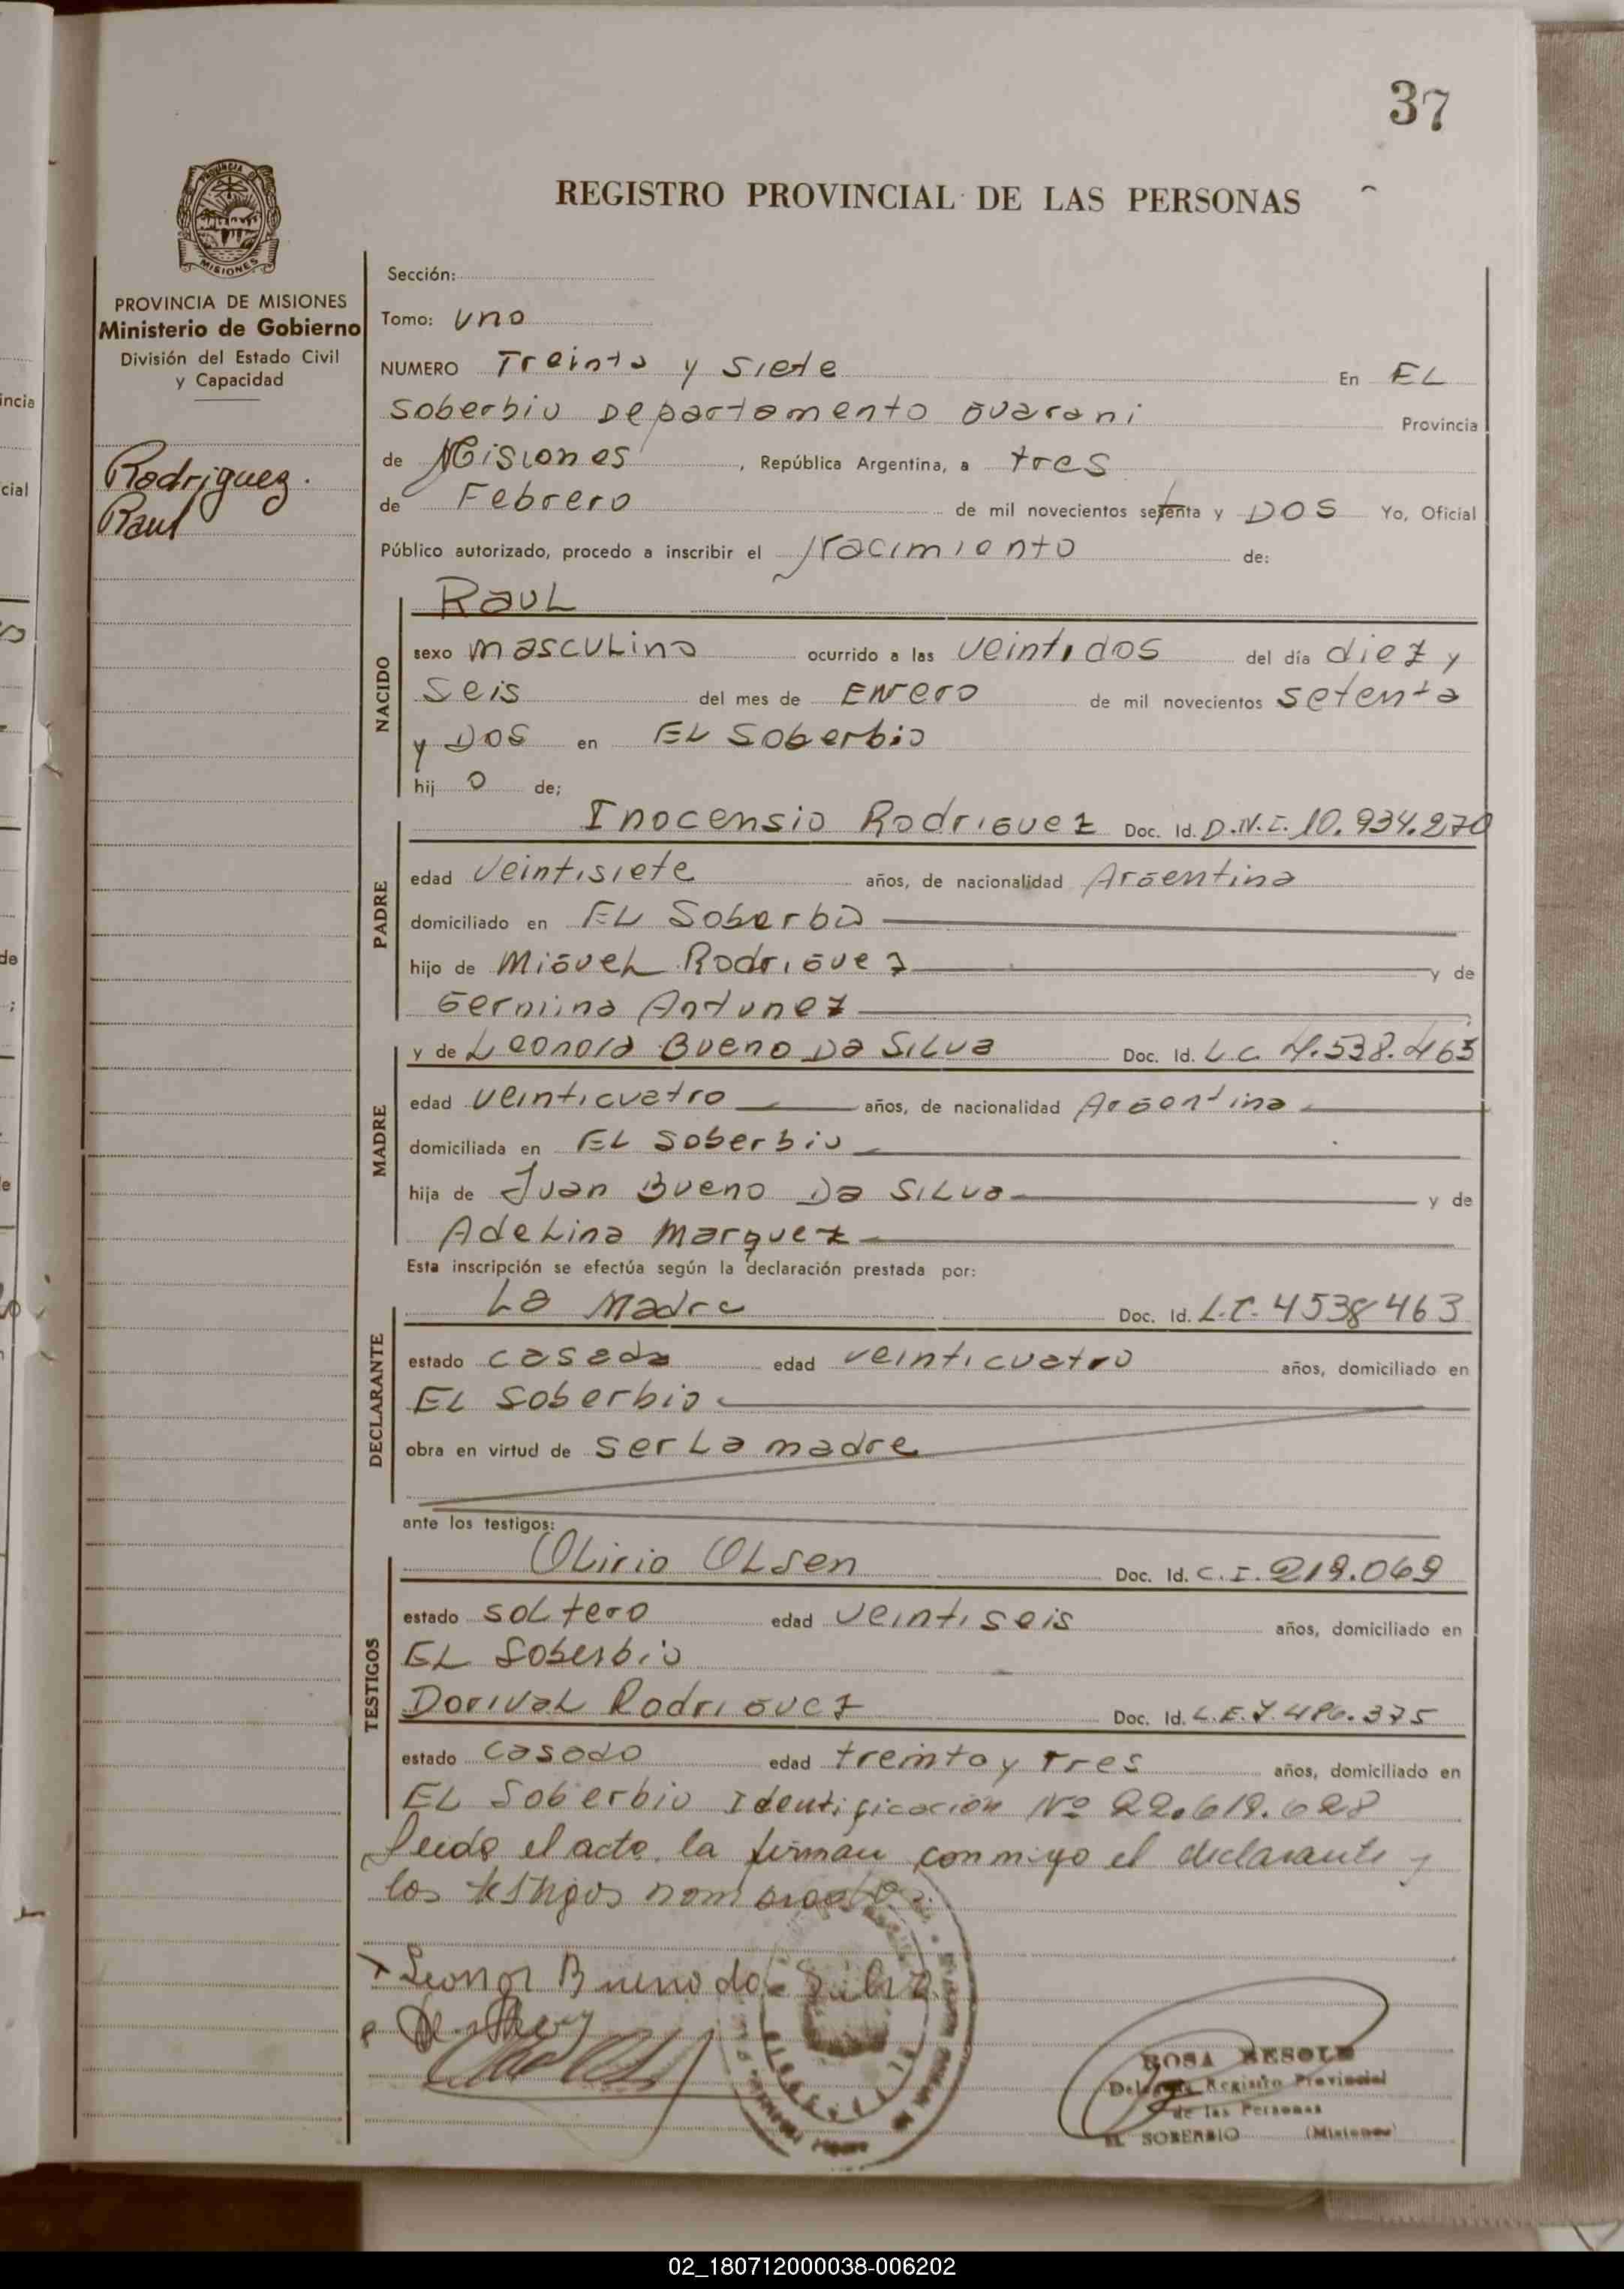 37
REGISTRO PROVINCIAL DE LAS PERSONAS
PROVINCIA DE
MISIONES
PROVINCIA DE MISIONES
Ministerio de Gobierno
División del Estado Civil
y Capacidad
Rodriguez.
Raul
Sección:
Tomo: uno
NUMERO Treinta y Siete En EL
Soberbio Departamento Guarani Provincia
de Misiones, República Argentina, a tres
de Febrero de mil novecientos setenta y DOS Yo, Oficial
Público autorizado, procedo a inscribir el Nacimiento de:
NACIDO
RauL
sexo mascuLino ocurrido a las veintidos del día diez y
Seis del mes de Enero de mil novecientos setenta
y DOS en EL Soberbio
hij o de;
PADRE
Inocensio Rodriguez Doc. Id. D.N.I. 10.934.270
edad veintisiete años, de nacionalidad Argentina
domiciliado en EL Soberbio
hijo de MigueL Rodriguez y de
Germina Antunez
MADRE
y de Leonora Bueno Da SiLva Doc. Id. L.C. 4.538.463
edad veinticuatro años, de nacionalidad Argentina
domiciliada en EL Soberbio
hija de Juan Bueno Da SiLva y de
AdeLina Marquez
Esta inscripción se efectúa según la declaración prestada por:
DECLARANTE
La Madre Doc. Id. L.C. 4538463
estado casada edad veinticuatro años, domiciliado en
EL Soberbio
obra en virtud de ser La madre
ante los testigos:
TESTIGOS
OLirio OLsen Doc. Id. C.I. 219.069
estado soLtero edad veintiseis años, domiciliado en
EL Soberbio
DorivaL Rodriguez Doc. Id. L.E. 7.486.375
estado casado edad treinta y Tres años, domiciliado en
EL Soberbio Identificación Nº 22.619.628
Leida el acta, la firman conmigo el declarante y
los testigos nombrados.
Leonor Bueno da Silva
ROSA
Registro Provincial
de las Personas
EL SOBERBIO (Misiones)
02_180712000038-006202